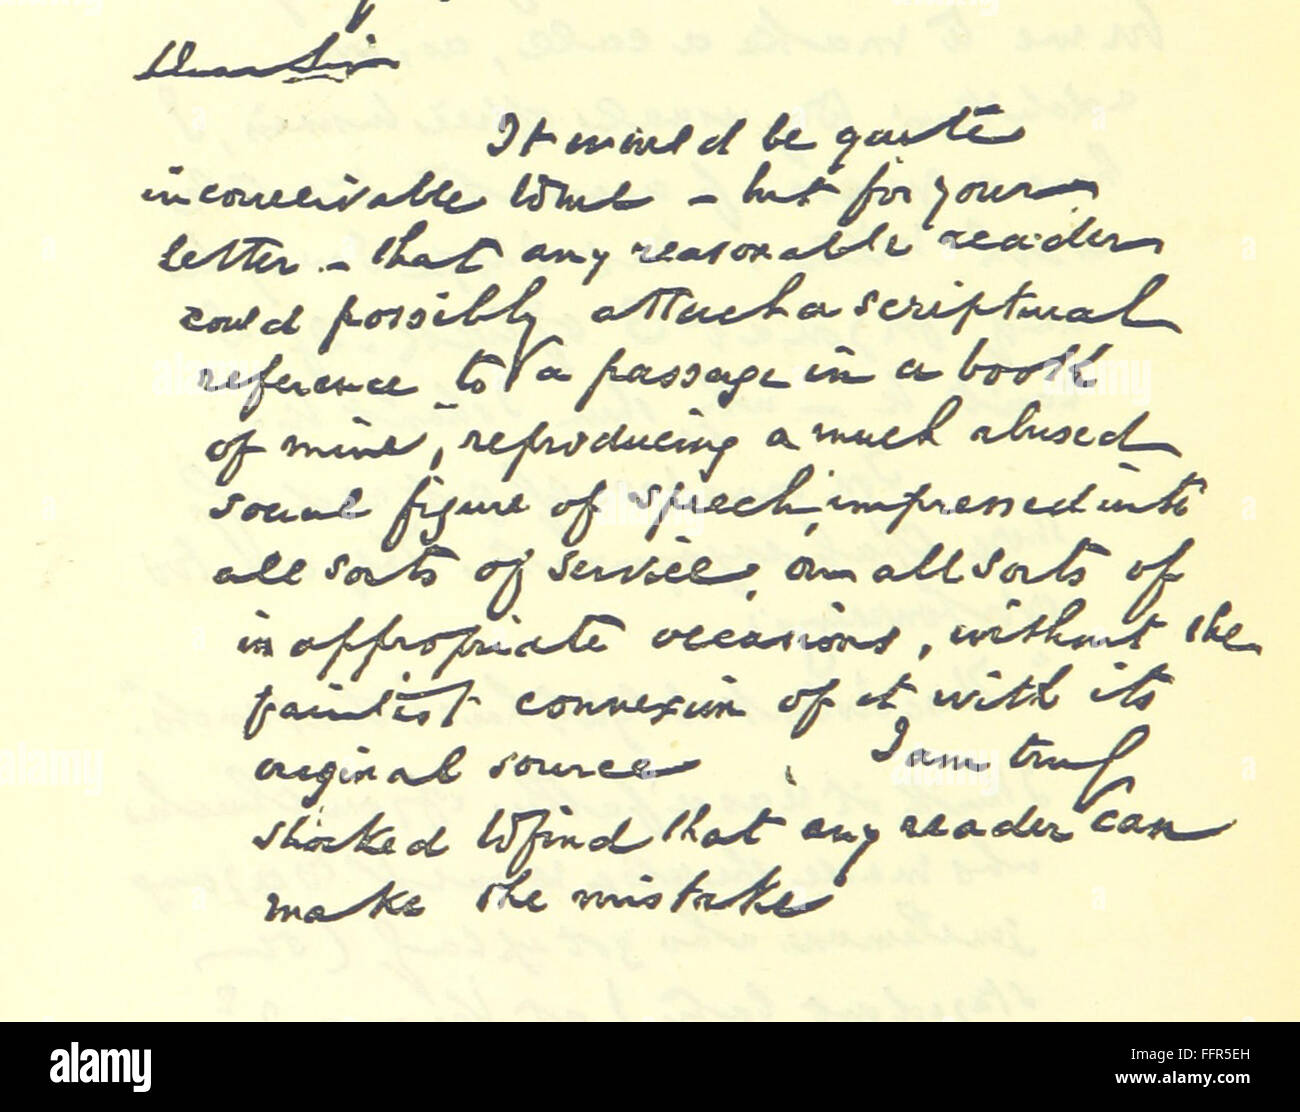 Dear Sir
It would be quite
inconceivable to me – but for your
letter – that any reasonable reader
could possibly attach a scriptural
reference to a passage in a book
of mine, reproducing a much abused
social figure of speech, impressed into
all sorts of service, on all sorts of
inappropriate occasions, without the
faintest connexion of it with its
original source. I am truly
shocked to find that any reader can
make the mistake
alamy
Image ID: FFR5EH
www.alamy.com